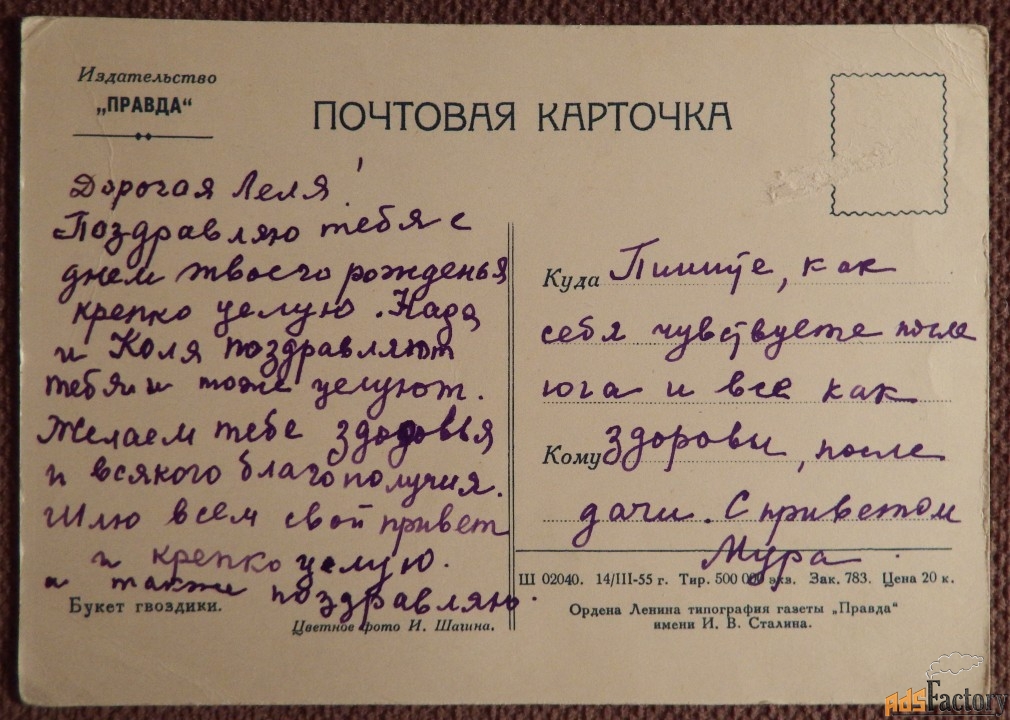 Издательство
„ПРАВДА“
ПОЧТОВАЯ КАРТОЧКА
Дорогая Леля!
Поздравляю тебя с
днем твоего рожденья
крепко целую. Надя
и Коля поздравляют
тебя и тоже целуют.
Желаем тебе здоровья
и всякого благополучия.
Шлю всем свой привет
и крепко целую.
а также поздравляю.
Букет гвоздики.
Цветное фото И. Шагина.
Куда Пишите, как
себя чувствуете после
юга и все как
Кому здоровы, после
дачи. С приветом
Мура.
Ш 02040. 14/III-55 г. Тир. 500 000 экз. Зак. 783. Цена 20 к.
Ордена Ленина типография газеты „Правда“
имени И. В. Сталина.
AdsFactory